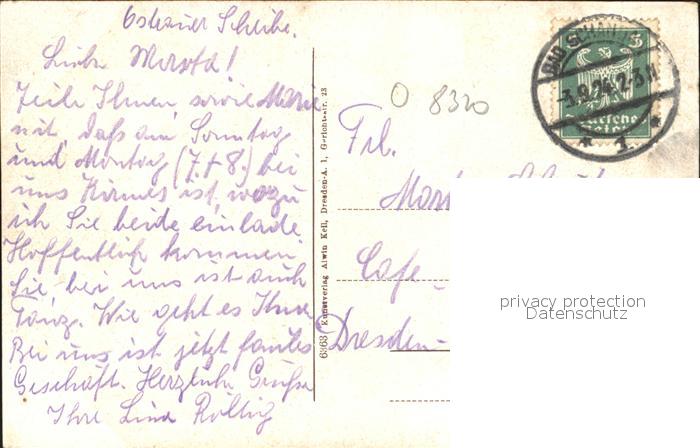 Ostrauer Scheibe.
Liebe Martha!
Teile Ihnen, sowie Marie
mit, daß am Sonntag
und Montag (7.+8.) bei
uns Kirmes ist, wozu
ich Sie beide einlade
Hoffentlich kommen
Sie bei uns ist auch
Tanz. Wie geht es Ihnen
Bei uns ist jetzt faules
Geschäft. Herzliche Grüße
Ihre Lina
6363 Kunstverlag Alwin Keil, Dresden-A. 1, Gerichtsstr. 23
O 8320
Frl.
Cafe-
Dresden-
5
Deutsche
Reich
BAD SCHAN
-3.9.24. 2-3 N
* 1 *
privacy protection
Datenschutz